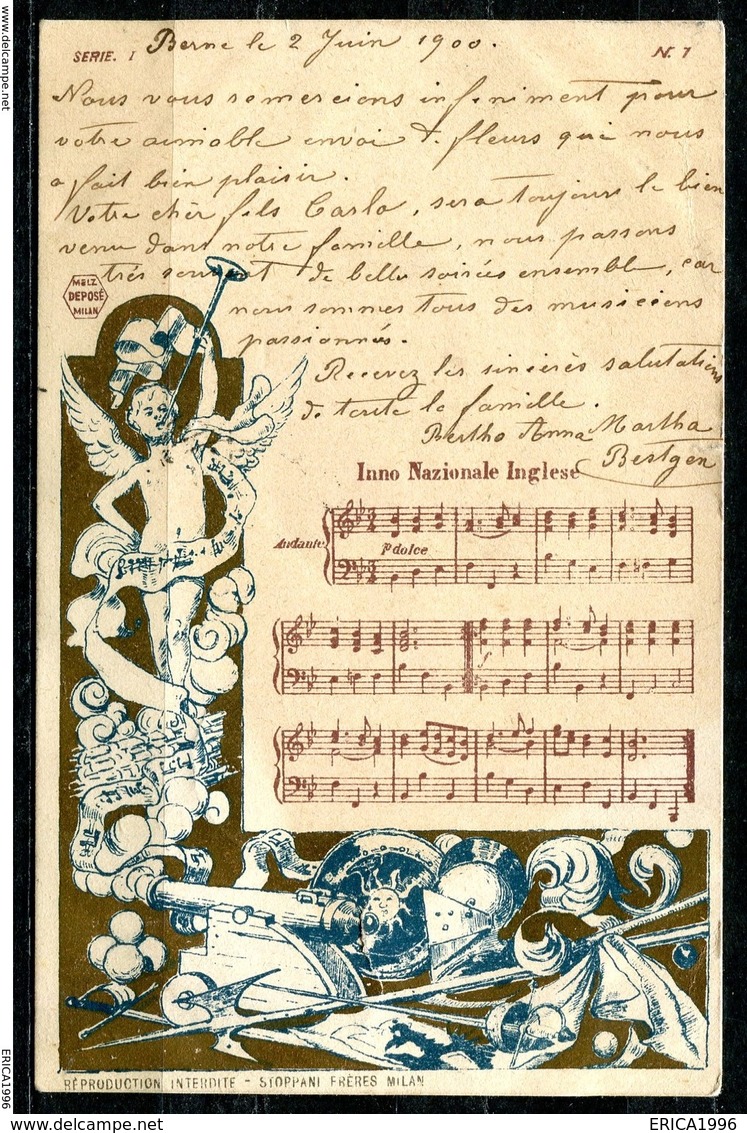 www.delcampe.net
SERIE. I Berne le 2 Juin 1900. N. 7
Nous vous remercions infiniment pour
votre aimable envoi de fleurs qui nous
a fait bien plaisir.
Votre cher fils Carlo, sera toujours le bien
venu dans notre famille, nous passons
très souvent de belle soirées ensemble, car
nous sommes tous des musiciens
passionnés.
Recevez les sincères salutations
de toute la famille.
Bertha Anna Martha
Bestgen
MELZ
DEPOSÉ
MILAN
Inno Nazionale Inglese
Andante
P dolce
f
REPRODUCTION INTERDITE - STOPPANI FRÈRES MILAN
ERICA1996
ERICA1996